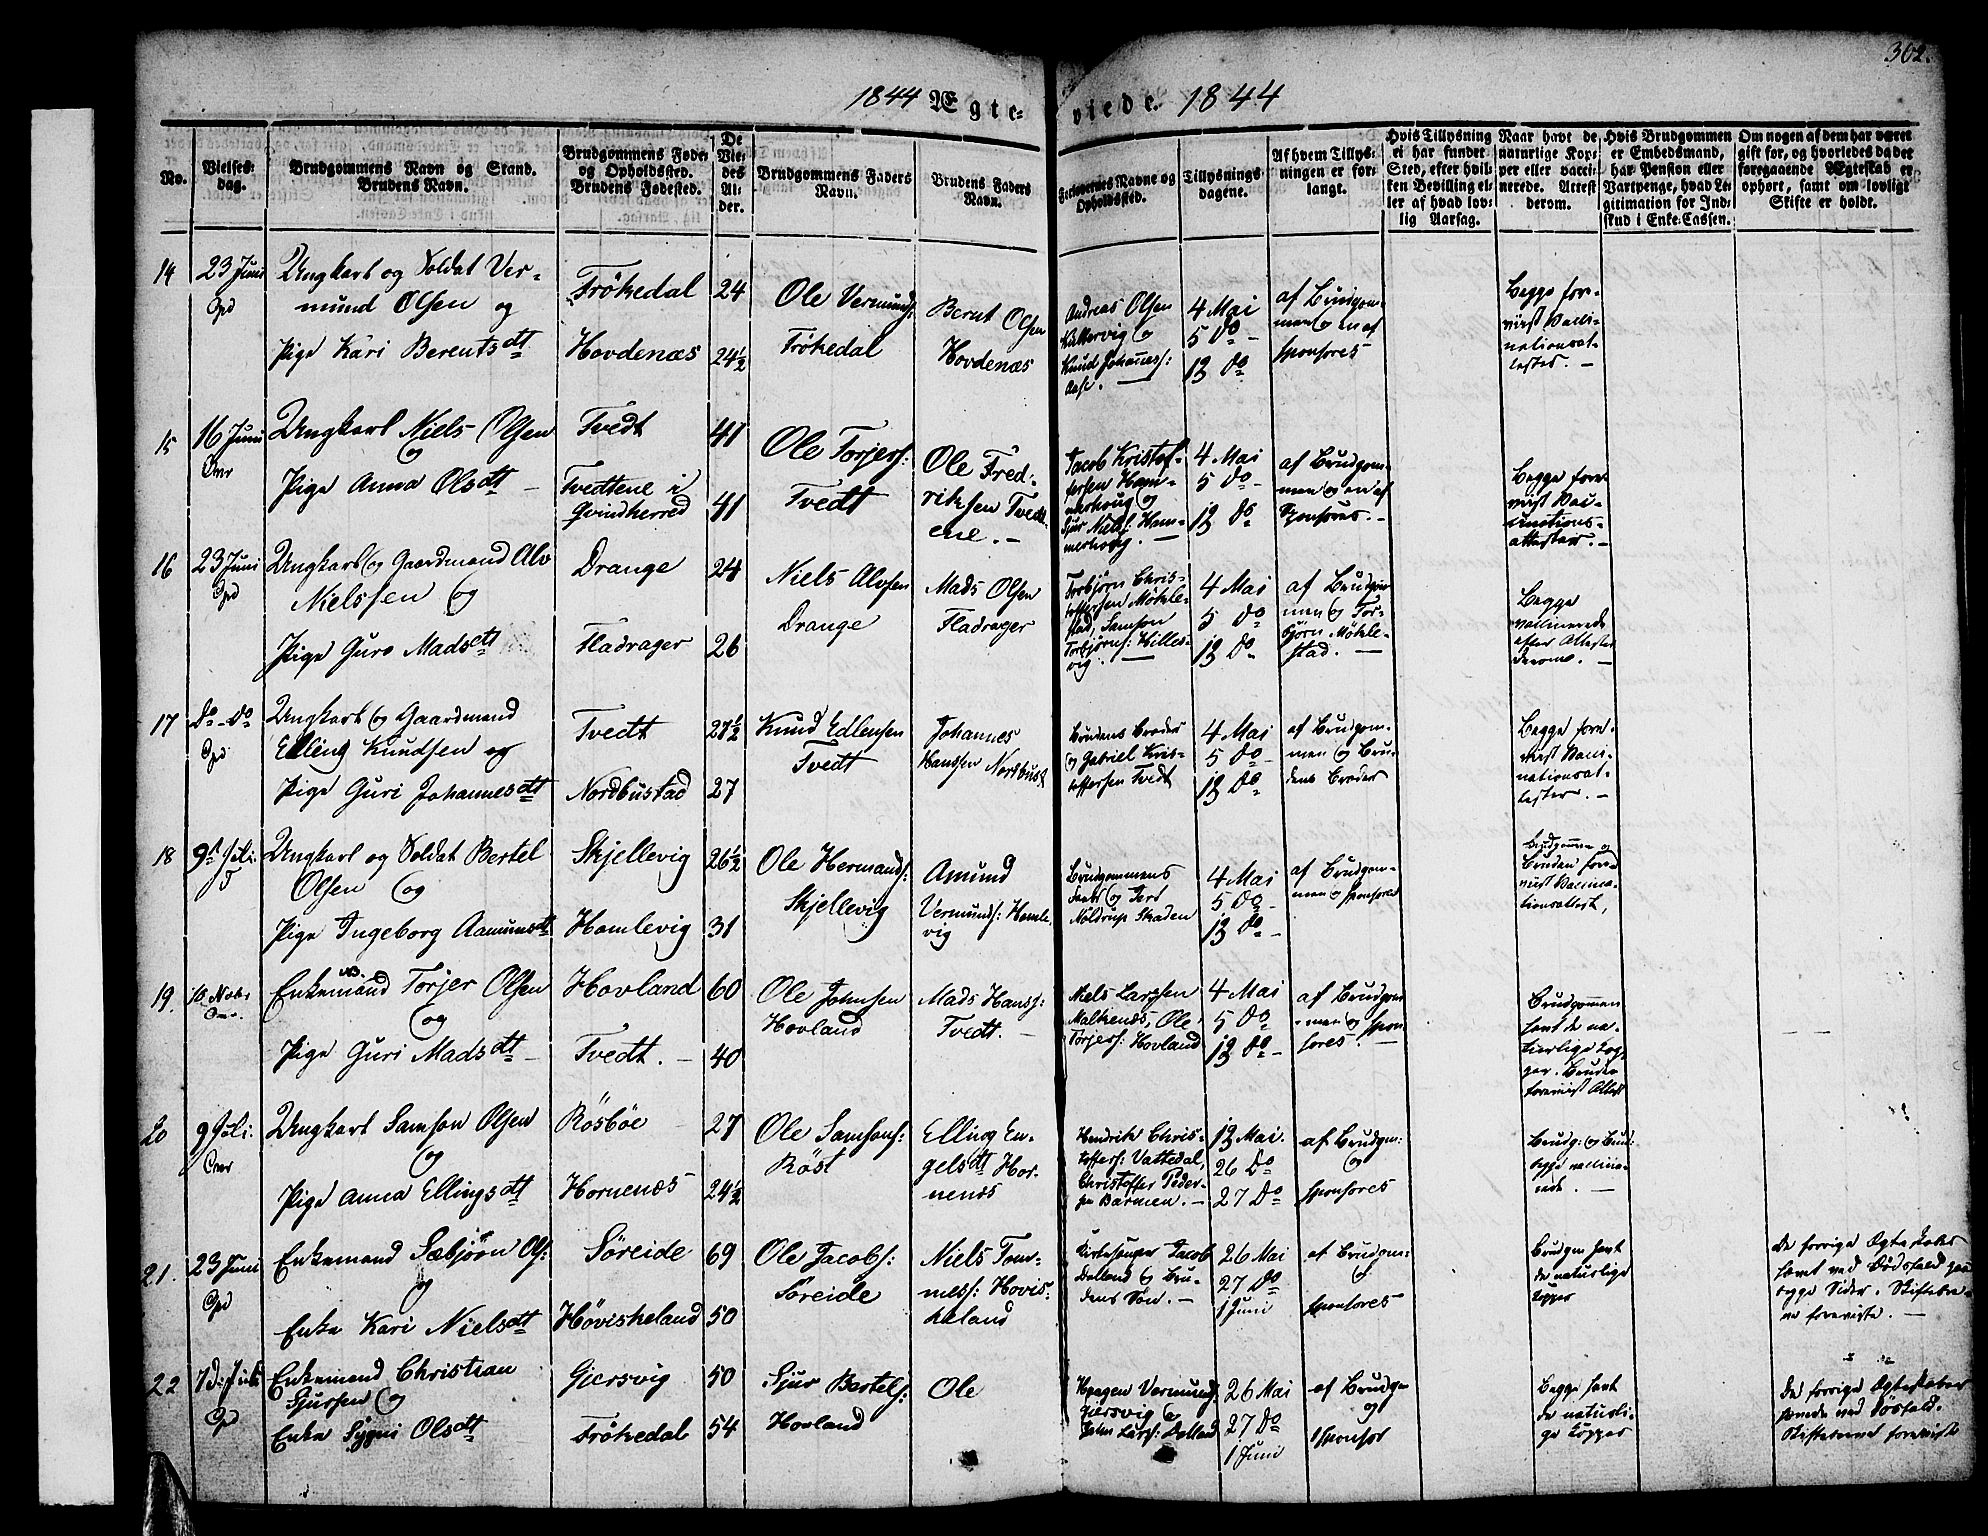 302.
1844 Ægte- viede. 1844
No.
Vielses-
dag.
Brudgommens Navn og Stand.
Brudens Navn.
Brudgommens Føde-
og Opholdssted.
Brudens Fødested.
De
Vie-
des
Al-
der.
Brudgommens Faders
Navn.
Brudens Faders
Navn.
Forlovernes Navne og
Opholdssted.
Tillysnings-
dagene.
Af hvem Tillys-
ningen er for-
langt.
Hvis Tillysning
ei har fundet
Sted, efter hvil-
ken Bevilling el-
ler af hvad lov-
lig Aarsag.
Naar havt de
naturlige Kop-
per eller vacci-
nerede. Attest
derom.
Hvis Brudgommen
er Embedsmand,
har Pension eller
Vartpenge, hvad Le-
gitimation for Ind-
skud i Enke-Cassen.
Om nogen af dem har været
gift før, og hvorledes da det
foregaaende Ægteskab er
ophørt, samt om lovligt
Skifte er holdt.
14
23 Juni
Ungkarl og Soldat Ver-
mund Olsen og
Pige Kari Berentsdt
Frökedal
Hovdenæs
24
24½
Ole Vermunds:
Frökedal
Bernt Olsen
Hovdenæs
Andreas Olsen
Knud Johannes:
Aase.
4 Mai
5 Do
12 Do
af Brudgom-
men og en af
sponsores
Begge for-
viist Vacci-
nationsat-
tester. -
15
16 Juni
Ungkarl Niels Olsen
og
Pige Anna Olsdt
Tvedt
Tvedtene i
Qvindherred
41
41
Ole Torjers:
Tvedt
Ole Fred-
riksen Tvedt-
ene. -
Jacob Kristof-
fersen Ham-
merhoug og
Sjur Niels: Ham-
merhoug. -
4 Mai
5 Do
12 Do
af Brudgom-
men og en af
Sponsores. -
Begge fore-
viist Vac-
cinations-
attester. -
16
23 Juni
Ungkarl og Gaardmand Alv
Nielssen og
Pige Guro Madsdt
Drange
Fladrager
24
26
Niels Alvsen
Drange
Mads Olsen
Fladrager
Torbjörn Chris-
toffersen Mökle-
stad, Samson
Torbjörns: Hilles-
vig. -
4 Mai
5 Do
12 Do
af Brudgom-
men og Tor-
björn Mökle-
stad. -
Begge
vaccinerede
efter Attester
derom. -
17
Do - Do
Ungkarl og Gaardmand
Elling Knudsen og
Pige Guri Johannesdt
Tvedt
Nordbustad
27½
27
Knud Edlensen
Tvedt
Johannes
Hanssen Nordbust
Brudens Broder
og Gabriel Kris-
toffersen Tvedt
4 Mai
5 Do
12 Do
af Brudgom-
men og Bru-
dens Broder
Begge fore-
viist Vacci-
nationsat-
tester. -
18
9de Juli
Ungkarl og Soldat Bertel
Olsen og
Pige Ingeborg Aamundsdt
Skjellevig
Hamlevig
26½
31
Ole Hermands:
Skjellevig
Amund
Vermunds: Hamle-
vig
Brudgommens
Fader og Lars
Nöldrup Skaden
4 Mai
5 Do
12 Do
af Brudgom-
men og sponsores
Brudgommen og
Bruden fore-
viist Vaccina-
tionsattest,
19.
10 Nvbr
Enkemand Torjer Olsen
og
Pige Guri Madsdt
Hovland
Tvedt. -
60
40
Ole Johnsen
Hovland
Mads Hanss:
Tvedt. -
Niels Larssen
Malkenes, Ole
Torjers: Hovland
4 Mai
5 Do
12 Do
af Brudgom
men og spon
sores. -
Brudgommen
havt de na-
turlige Kop-
per. Bruden
foreviist Attest
20
9 Juli
Ungkarl Samson Olsen
og
Pige Anna Ellingsdt
Rösböe
Hornenæs
27
24½
Ole Samsons:
Röst
Elling En-
gelsdt Hor-
nenæs
Hendrik Chris-
toffers: Vattedal,
Christoffer Peder-
sen Barmen. -
12 Mai.
26 Do
27 Do
af Brudgom:
og
sponsores
Brudg: og Brud:
begge vaccine-
rede. -
21.
23 Juni
Enkemand Sæbjörn Ols:
og
Enke Kari Nielsdt
Söreide
Höviskeland
69
50
Ole Jacobs:
Söreide
Niels Tom-
mess: Hövis-
keland
Kirkesanger Jacob
Dalland og Bru-
dens Sön. -
26 Mai
27 Do
1 Juni
af Brudgom:
og
sponsores
Brudgom havt
de naturlige
Kopper
De forrige Ægteskaber
hævet ved Dödsfald paa
begge Sider. Skiftebre-
ve foreviste. -
22
7de Juli
Enkemand Christian
Sjurssen og
Enke Sygni Olsdt
Gjersvig
Frökedal
50
54
Sjur Bertels:
Hovland
Ole
Haagen Vermunds:
Gjersvig og
John Lars: Dalland
26 Mai
27 Do
1 Juni
af Brudgom
og
sponsor
Begge havt
de naturli-
ge Kopper
De forrige Ægteskaber
hævede ved Dösfald.
Skiftebrevet foreviste